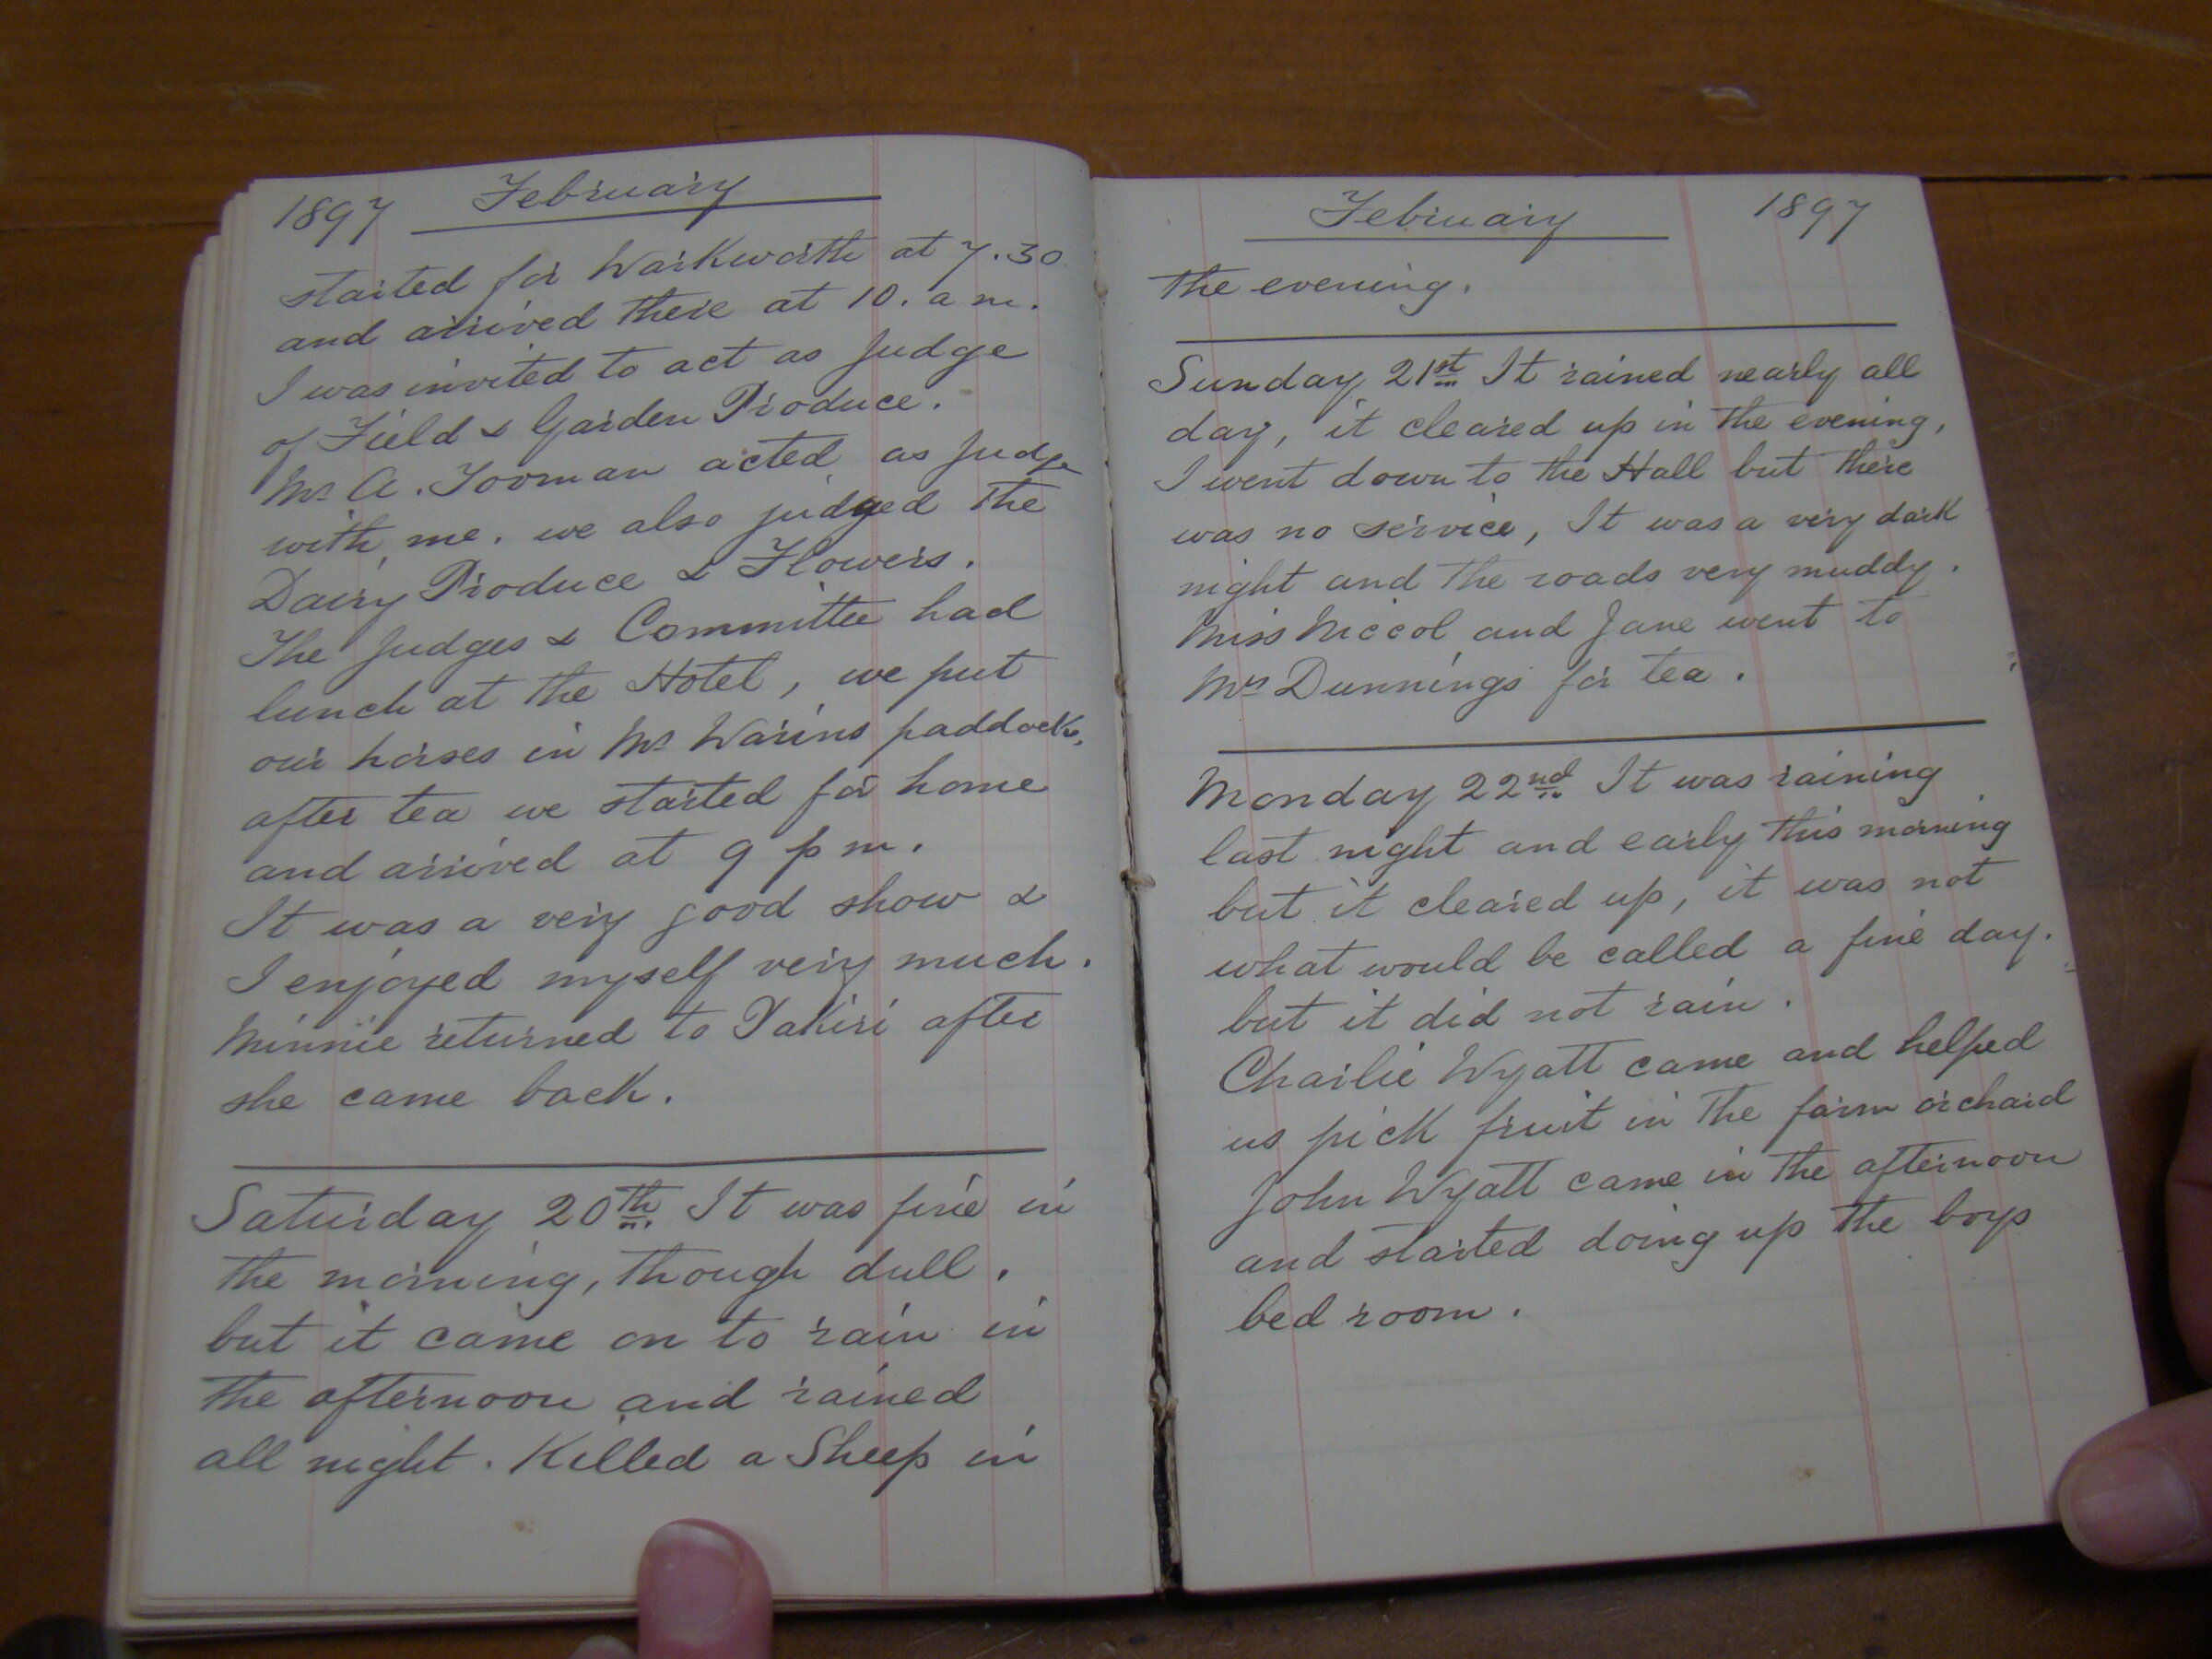 1897 February
started for Warkworth at 7.30
and arrived there at 10. a m.
I was invited to act as Judge
of Field & Garden Produce.
Mr A. Tooman acted as Judge
with me. we also judged the
Dairy Produce & Flowers.
The Judges & Committee had
lunch at the Hotel, we put
our horses in Mr Warins paddock,
after tea we started for home
and arrived at 9 p m.
It was a very good show &
I enjoyed myself very much.
Minnie returned to Pakiri after
she came back.
Saturday 20th It was fine in
the morning, though dull.
but it came on to rain in
the afternoon and rained
all night. Killed a Sheep in
February 1897
the evening.
Sunday 21st It rained nearly all
day, it cleared up in the evening,
I went down to the Hall but there
was no service, It was a very dark
night and the roads very muddy.
Miss Niccol and Jane went to
Mrs Dunnings for tea.
Monday 22nd It was raining
last night and early this morning
but it cleared up, it was not
what would be called a fine day.
but it did not rain.
Charlie Wyatt came and helped
us pick fruit in the farm orchard
John Wyatt came in the afternoon
and started doing up the boys
bed room.